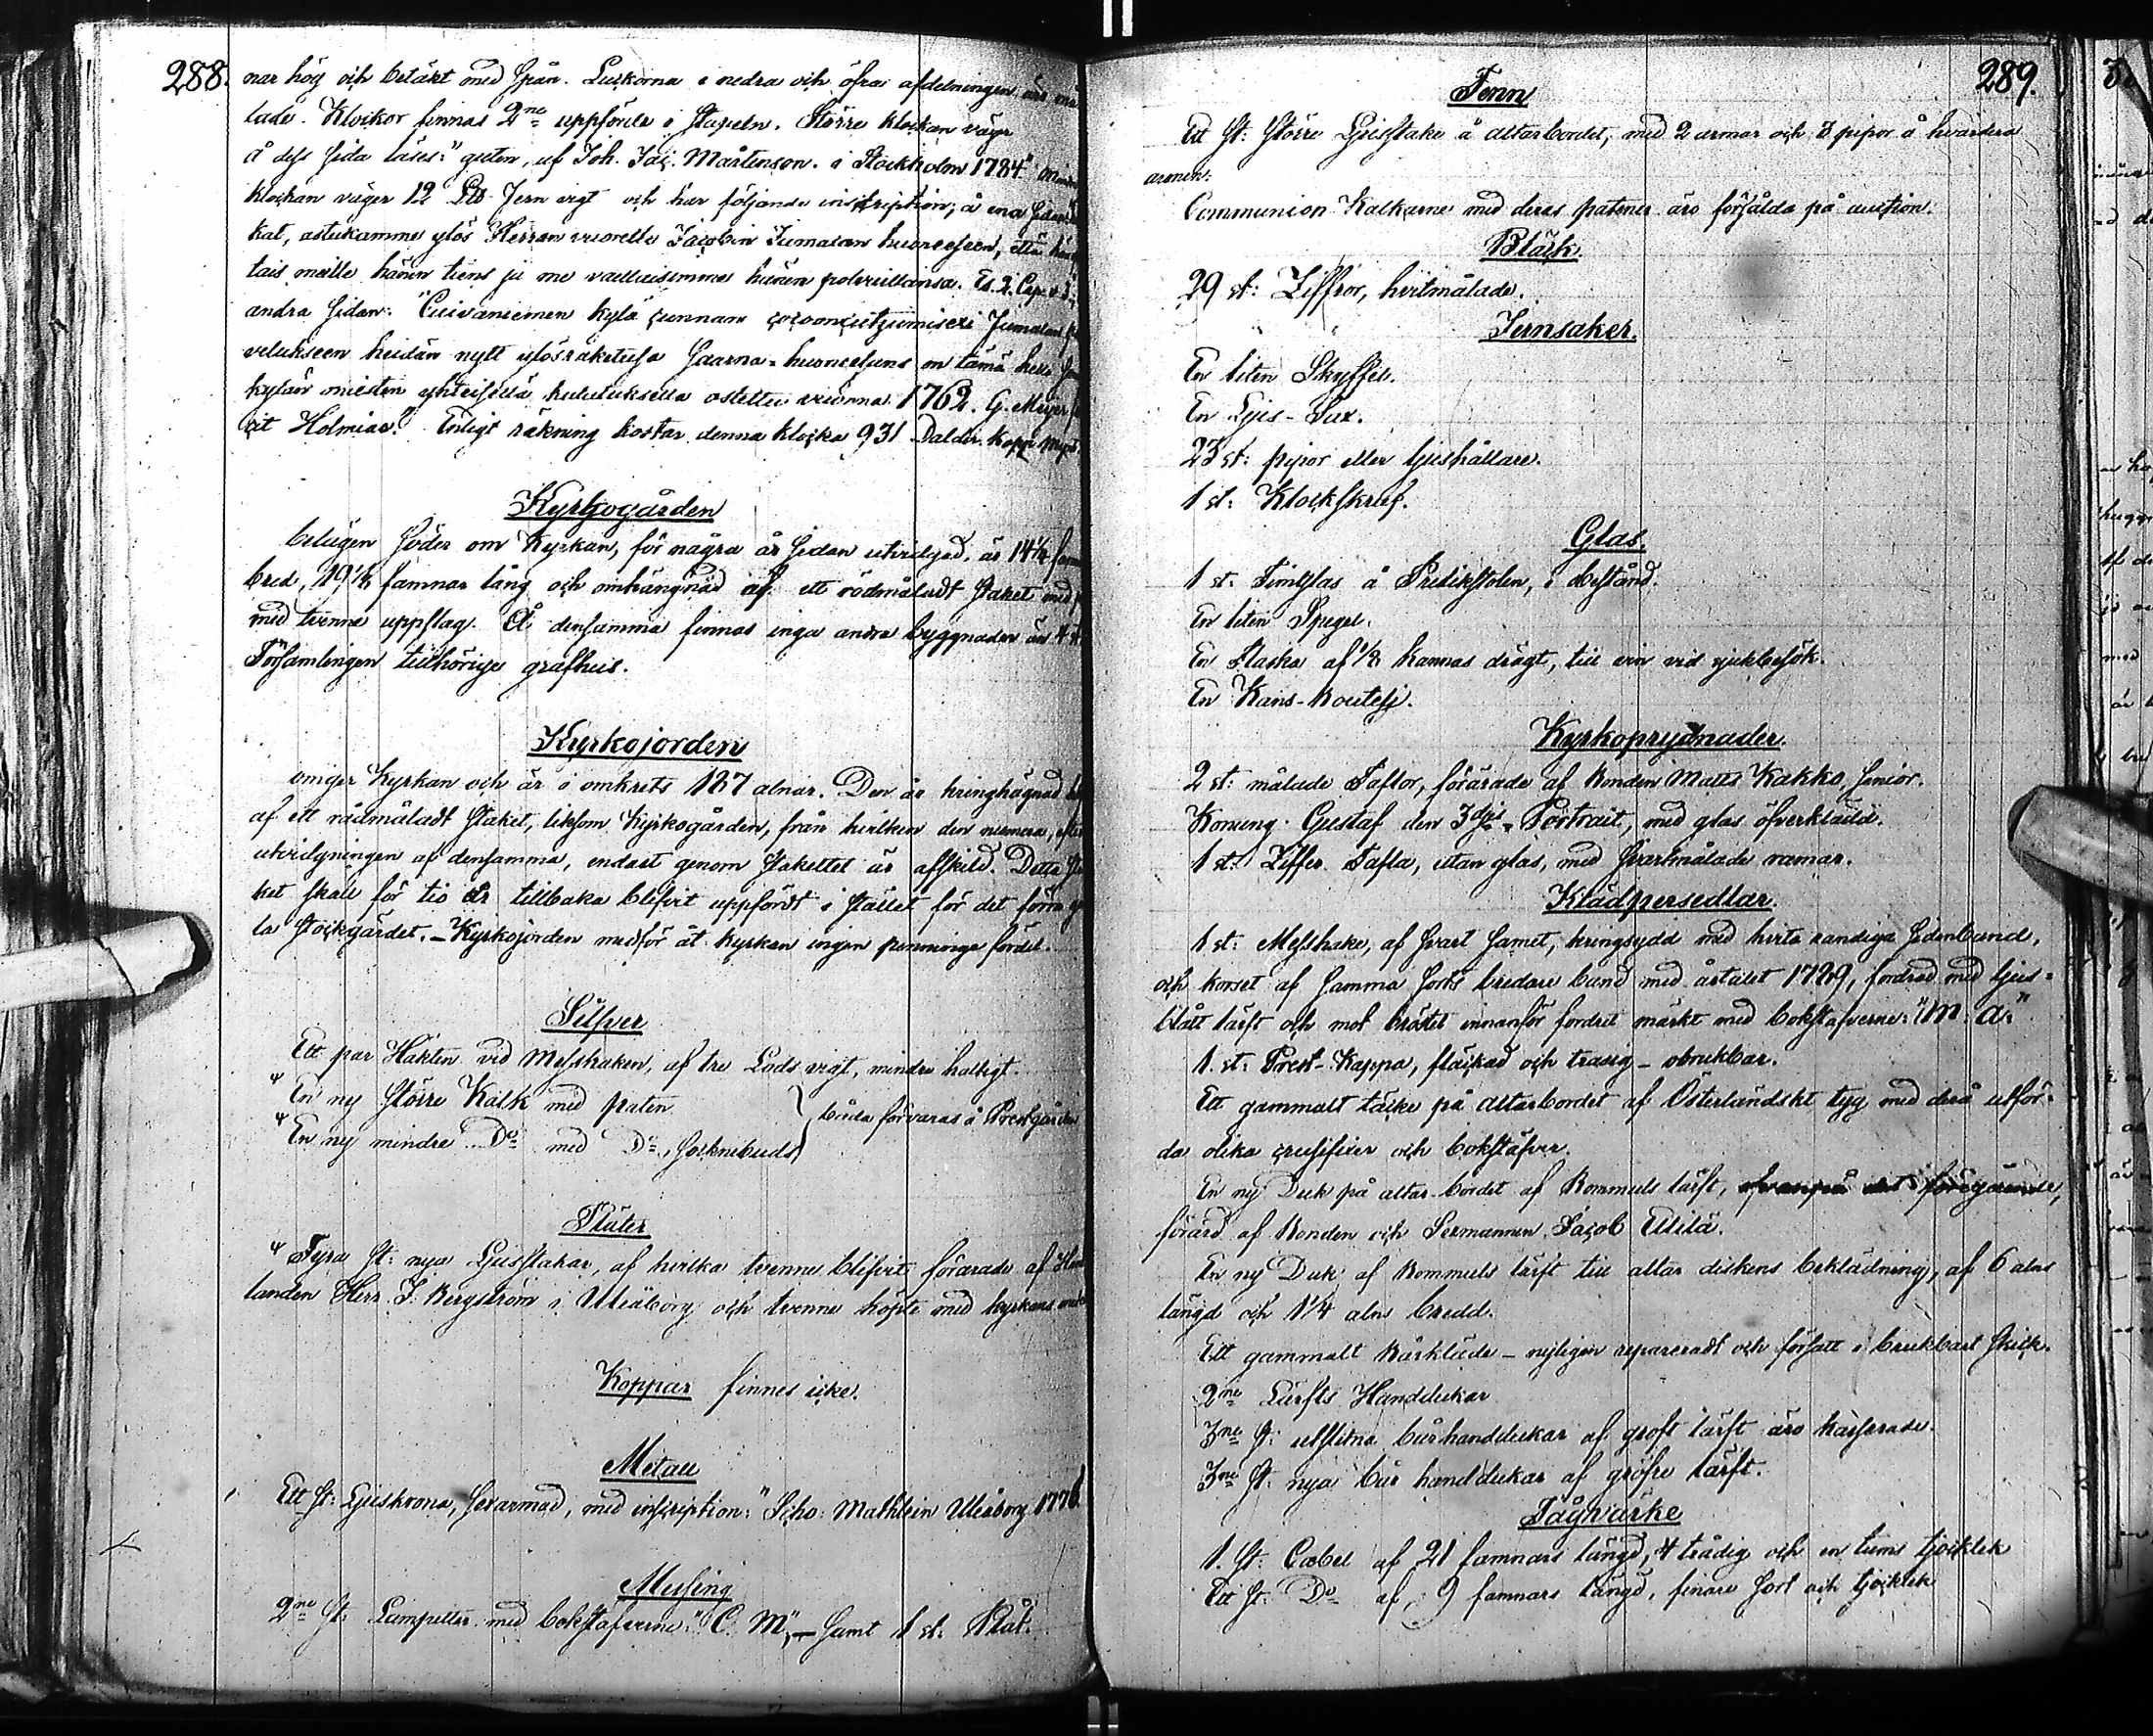 288.
nar hög och betäkt med spån. Luckorna i nedra och öfra afdelningen äro må
lade. Klockor finnas 2ne uppförde i stapeln. Större klockan väger
å dess sida läses: "guten, af Joh. Jac. Mårtenson. i Stockholm 1784."
klockan väger 12 Jern vigt och har följande inscription; å ena sidan
kat, astukamme ylös Herran vuorelle Jacobin Jumalan huoneeseen, että hän
tais meille hänen tiens ja me vaeldaisimme hänen polvuillansa. Es. 2. Cap. v 3.
andra sidan: "Cuivaniemen kylä cunnan cocooncutzumisexi Jumalan
velukseen heidän nytt ylösraketusa Saarna-huoneesans on tämä kello
kylän miesten yhteisellä kulutuksella ostettu vuonna 1762. G. Meyer
cit Holmiae." Enligt räkning kostar denna klocka 931 Daler Kopp. Mynt.
Kyrkogården
belägen söder om Kyrkan, för några år sedan utvidgad, är 14½
bred, 19½ famnar lång och omhängnad af ett rödmåladt staket med
med tvenne uppslag. På densamma finnas inga andra byggnader än
Församlingen tillhörige grafhus.
Kyrkojorden
omger Kyrkan och är i omkrets 187 alnar. Den är kringhägnad
af ett rådmåladt staket, liksom Kyrkogården, från hvilken den numera, efter
utvidgningen af densamma, endast genom stakettet är afskild. Detta sta
ket skall för tio år tillbaka blifvit uppfördt i stället för det förra
la stockgärdet. – Kyrkojorden medför åt kyrkan ingen penninge fördel.
Silfver
Ett par Häkten vid Messhaken, af tre Lods vigt, mindre haltigt.
En ny större Kalk med paten } båda förvaras i Prestgården
En ny mindre Do med Do, socknebuds
Pläter
Fyra st: nya Ljusstakar, af hvilka tvenne blifvit förärade af
landen Herr J. Bergström i Uleåborg och tvenne köpte med kyrkans
Koppar finnes icke.
Metall
Ett st: Ljuskrona, sexarmad, med inscription: "Scho: Mathlein Uleåborg 1776.
Messing
2ne st. Lampetter med bokstafverne: "C. M", – samt 1 st: Plåt.
289.
Tenn
Ett st: större Ljusstake å altarbordet, med 2 armar och 3 pipor å hvardera
armen.
Communion Kalkarne med deras patener äro försålda på auction.
Bläck.
29 st: Ziffror, hvitmålade.
Jernsaker.
En liten Skyffel.
En Ljus-Sax.
23 st: pipor eller ljushållare.
1 st: Klockskruf.
Glas.
1 st: Timglas å Predikstolen, i bestånd.
En liten Spegel.
En flaska af ½ kannas drägt, till vin vid sjukbesök.
En Kans-Boutelj.
Kyrkoprydnader.
2 st: målade Taflor, förärade af Bonden Matts Kakko, senior.
Konung Gustaf den 3djes Portrait, med glas öfverklädd.
1 st: Ziffer Tafla, utan glas, med svartmålade ramar.
Klädpersedlar.
1 st: Messhake, af svart samet, kringsydd med hvita randiga sidenband,
och korset af samma sorts bredare band med årtalet 1789, fodrad med ljus-
blått lärft och mot bröstet innanför fodret märkt med bokstafverne: "M: A:"
1. st: Prest-Kappa, fläckad och trasig – obrukbar.
Ett gammalt täcke på altarbordet af Österländskt tyg med derå utför-
da olika crusifixer och bokstäfver.
En ny Duk på altar-bordet af Bommuls lärft, ofvanpå det föregående,
förärd af Bonden och Sexmannen Jacob Ellilä.
En ny Duk af Bommuls lärft till altar diskens beklädning, af 6 alns
längd och 1¼ aln bredd.
Ett gammalt Bårkläde – nyligen repareradt och försatt i brukbart skick.
2ne Lärfts Handdukar
3ne st: utslitna bårhanddukar af groft lärft äro kasserade.
3ne st: nya bår handdukar af gröfre lärft.
Tågvärke
1. st: Cabel af 21 famnars längd, 4 trådig och en tums tjocklek
Ett st: Do af 9 famnars längd, finare sort och tjocklek